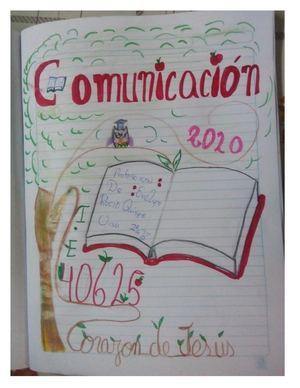 Comunicación
2020
Profesora
De
I.E
40625
Corazon de Jesús